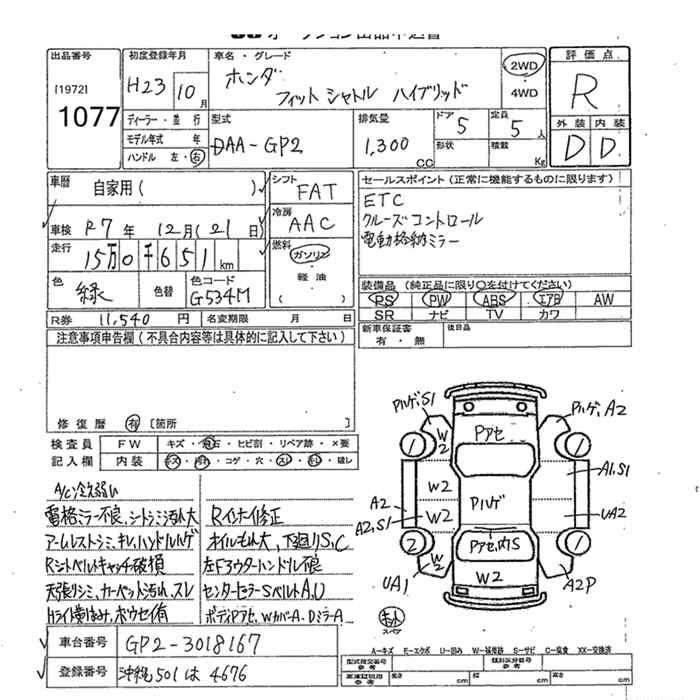 オークション出品申込書
出品番号
[1972]
1077
初度登録年月
H23 10月
ディーラー・並行
モデル年式 年
ハンドル 左・右
車名・グレード
ホンダ
フィット シャトル ハイブリッド
2WD
4WD
型式
DAA-GP2
排気量
1,300 CC
ドア 5
形状
定員 5 人
積載 Kg
評価点
R
外装 内装
D D
車歴 自家用( )
車検 R7年 12月(21日)
走行 15万0千651km
色 緑
色替
色コード G534M
シフト FAT
冷房 AAC
燃料 ガソリン
軽油
( )
セールスポイント(正常に機能するものに限ります)
ETC
クルーズコントロール
電動格納ミラー
装備品 (純正品に限り○を付けてください)
PS PW ABS エアB AW
SR ナビ TV カワ
R券 11,540 円 名変期限 月 日
新車保証書
有・無
後日品
注意事項申告欄(不具合内容等は具体的に記入して下さい)
修復歴 有 [箇所 ]
検査員 FW キズ・飛石・ヒビ割・リペア跡・×要
記入欄 内装 キズ・汚れ・コゲ・穴・スレ・キレ・破レ
A/C冷え弱い
電格ミラー不良、シートシミ汚れ大
アームレストシミ、キレ、ハンドルハゲ
Rシートベルトキャッチ破損
天張りシミ、カーペット汚れ、スレ
Hライト黄ばみ、ボウセイ有
Rインナー修正
オイルもれ大、下廻りS、C
左Fアウターハンドル不良
センターピラーSベルトA、U
ボディPアセ、WカバーA、DミラーA
Pハゲ、S1
Pハゲ、A2
W2
Pアセ
1
1
W2
A1、S1
Pハゲ
A2
A2、S1
W2
UA2
2
Pアセ、内S
1
W2
UA1
W2
A2P
キット
スペア
A-キズ E-エクボ U-凹み W-補修跡 S-サビ C-腐食 XX-交換済
車台番号 GP2-3018167
登録番号 沖縄 501 は 4676
型式指定番号
参考
類別区分番号
参考
車庫証明用
参考
長さ cm 幅 cm 高さ cm